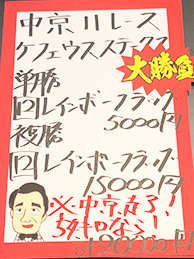 中京11レース
ケフェウスステークス
大勝負
単勝
12レインボーフラッグ
5000円
複勝
12レインボーフラッグ
15000円
※中京なら!
計20000円